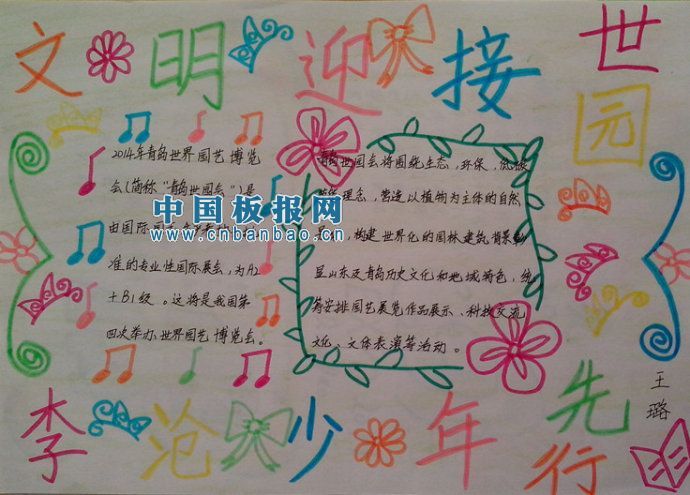 文明迎接世园
2014年青岛世界园艺博览
会(简称"青岛世园会")是
由国际
准的专业性国际展会,为A2
+B1级。这将是我国第
四次举办世界园艺博览会。
青岛世园会将围绕生态,环保,低碳
理念,营造以植物为主体的自然
,构建世界化的园林建筑背景,
显山东及青岛历史文化和地域特色,统
筹安排园艺展览作品展示、科技交流
文化、文体表演等活动。
中国板报网
www.cnbanbao.cn
李沧少年先行
王璐